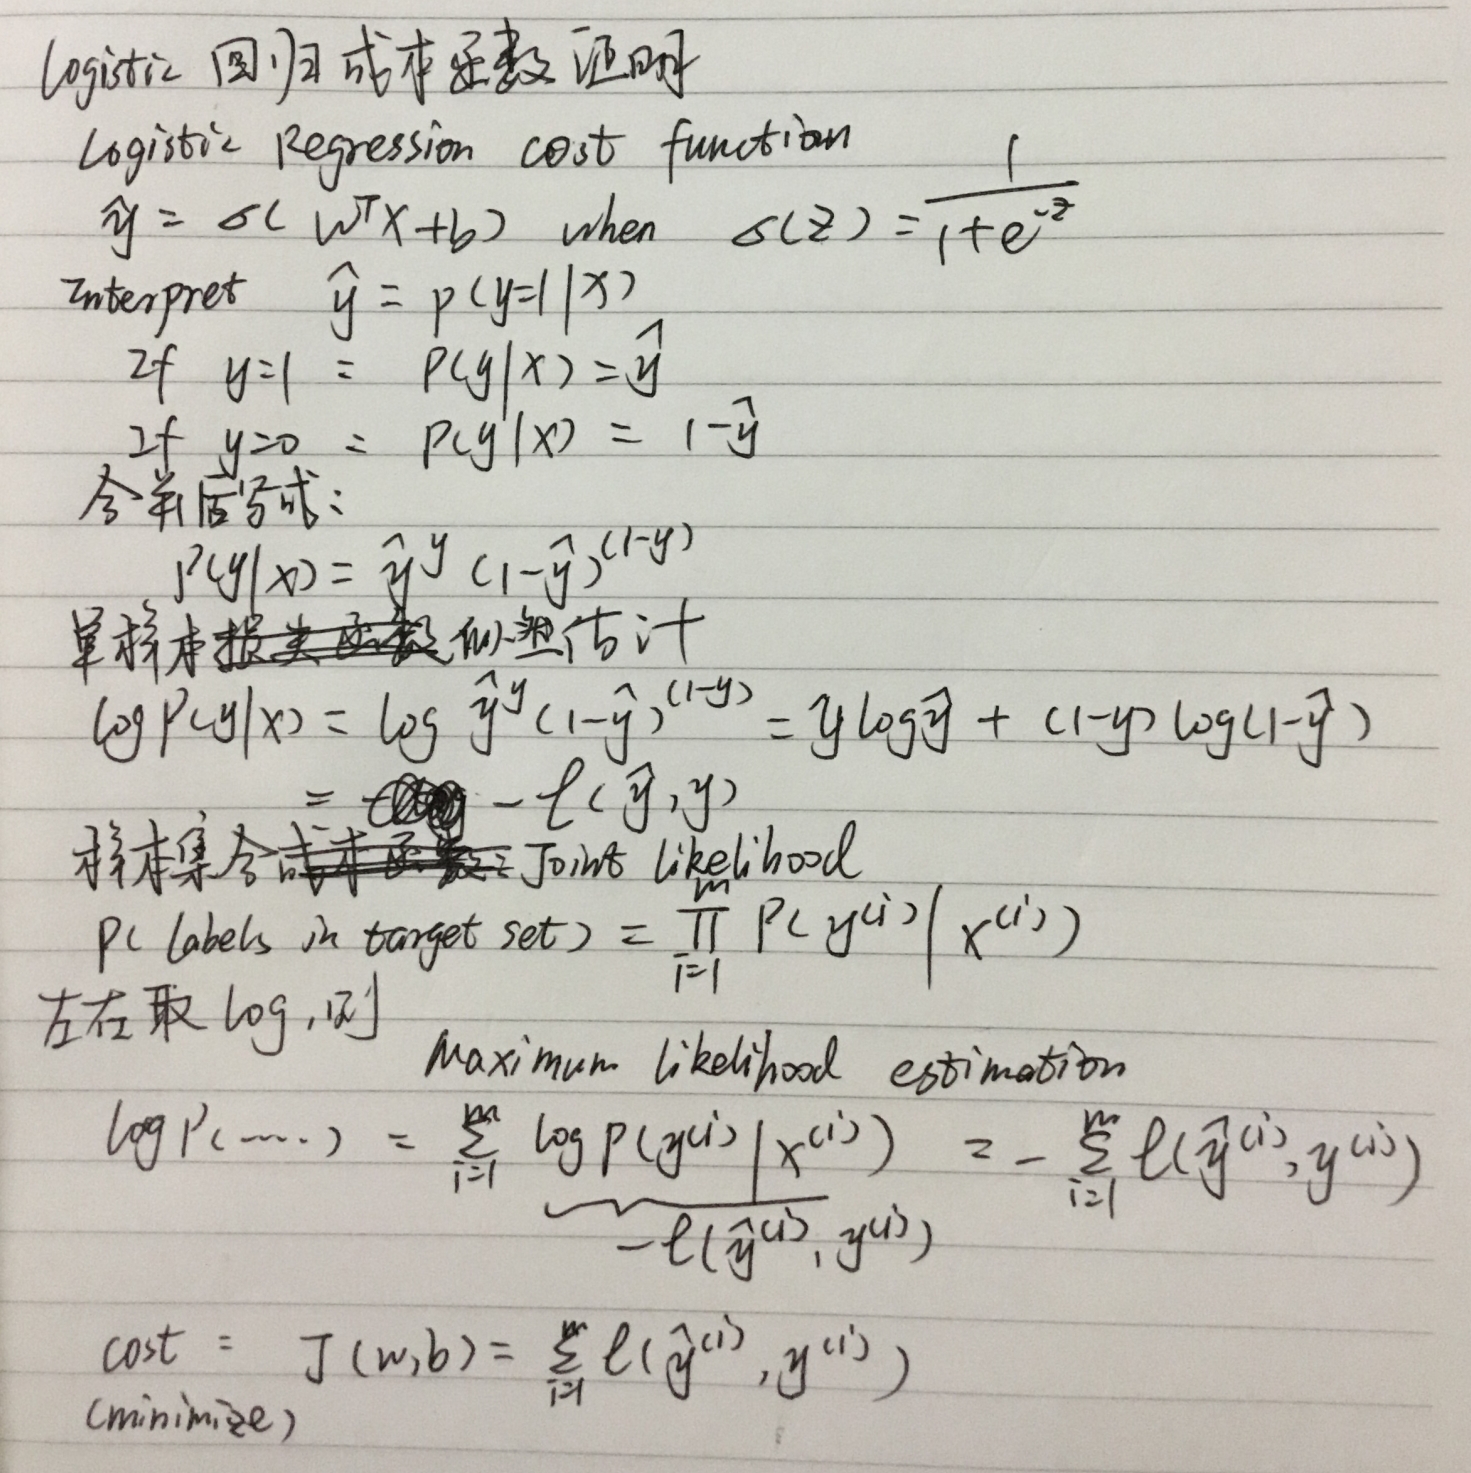 Logistic 回归成本函数证明
Logistic Regression cost function
ŷ = σ(wᵀx+b) when σ(z) = 1/(1+e^{-z})
Interpret ŷ = p(y=1|x)
If y=1 : P(y|x) = ŷ
If y=0 : P(y|x) = 1-ŷ
合并后写成:
P(y|x) = ŷ^y (1-ŷ)^{(1-y)}
单样本似然估计
log P(y|x) = log ŷ^y (1-ŷ)^{(1-y)} = y log ŷ + (1-y) log(1-ŷ)
= -ℓ(ŷ, y)
样本集合: Joint likelihood
P(labels in target set) = ∏_{i=1}^{m} P(y^{(i)} | x^{(i)})
左右取 log, 则
Maximum likelihood estimation
log P(.....) = ∑_{i=1}^{m} log P(y^{(i)} | x^{(i)}) = - ∑_{i=1}^{m} ℓ(ŷ^{(i)}, y^{(i)})
-ℓ(ŷ^{(i)}, y^{(i)})
cost : J(w,b) = ∑_{i=1}^{m} ℓ(ŷ^{(i)}, y^{(i)})
(minimize)